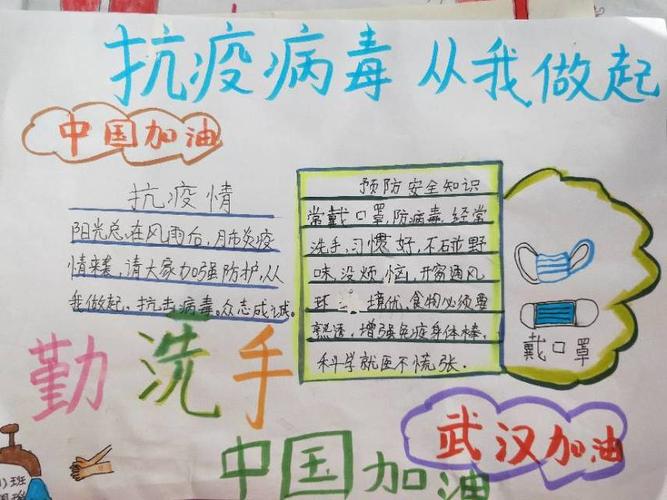 抗疫病毒 从我做起
中国加油
抗疫情
阳光总,在风雨后,月市炎疫
情来袭,请大家加强防护,从
我做起,抗击病毒。众志成诚。
预防安全知识
常戴口罩,防病毒,经常
洗手,习惯好,不碰野
味没烦恼,开窗通风
环 境优,食物必须要
熟透,增强免疫身体棒,
科学就医不慌张.
戴口罩
勤洗手
武汉加油
中国加油
班